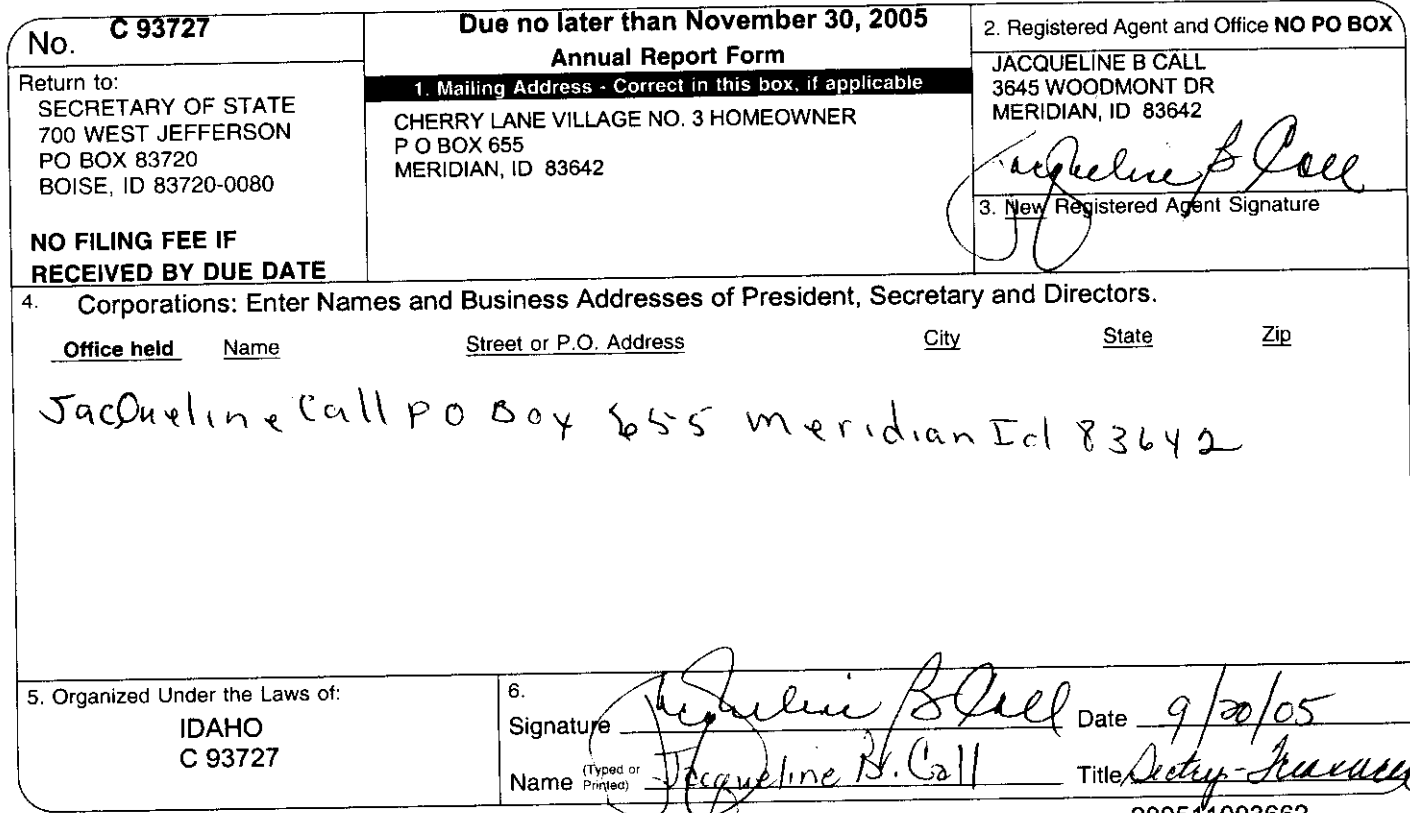 No. C 93727
Return to:
SECRETARY OF STATE
700 WEST JEFFERSON
PO BOX 83720
BOISE, ID 83720-0080
NO FILING FEE IF
RECEIVED BY DUE DATE
Due no later than November 30, 2005
Annual Report Form
1. Mailing Address - Correct in this box, if applicable
CHERRY LANE VILLAGE NO. 3 HOMEOWNER
P O BOX 655
MERIDIAN, ID 83642
2. Registered Agent and Office NO PO BOX
JACQUELINE B CALL
3645 WOODMONT DR
MERIDIAN, ID 83642
Jacqueline B Call
3. New Registered Agent Signature
4. Corporations: Enter Names and Business Addresses of President, Secretary and Directors.
Office held Name Street or P.O. Address City State Zip
Jacqueline Call PO Box 655 Meridian Id 83642
5. Organized Under the Laws of:
IDAHO
C 93727
6.
Signature Jacqueline B Call Date 9/20/05
Name (Typed or Printed) Jacqueline B. Call Title Sectry-Treasurer